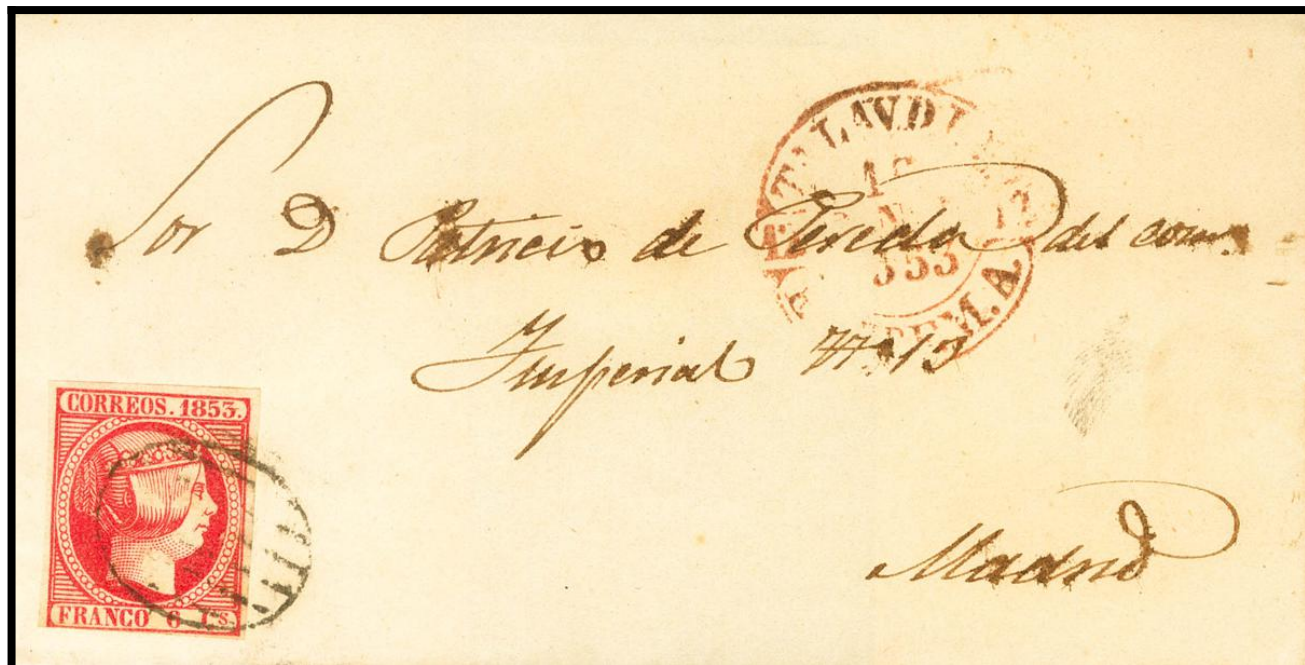 Sor D Patricio de Pereda del com.
Imperial Nº 13
Madrid
1853
CORREOS. 1853.
FRANCO 6 Cs